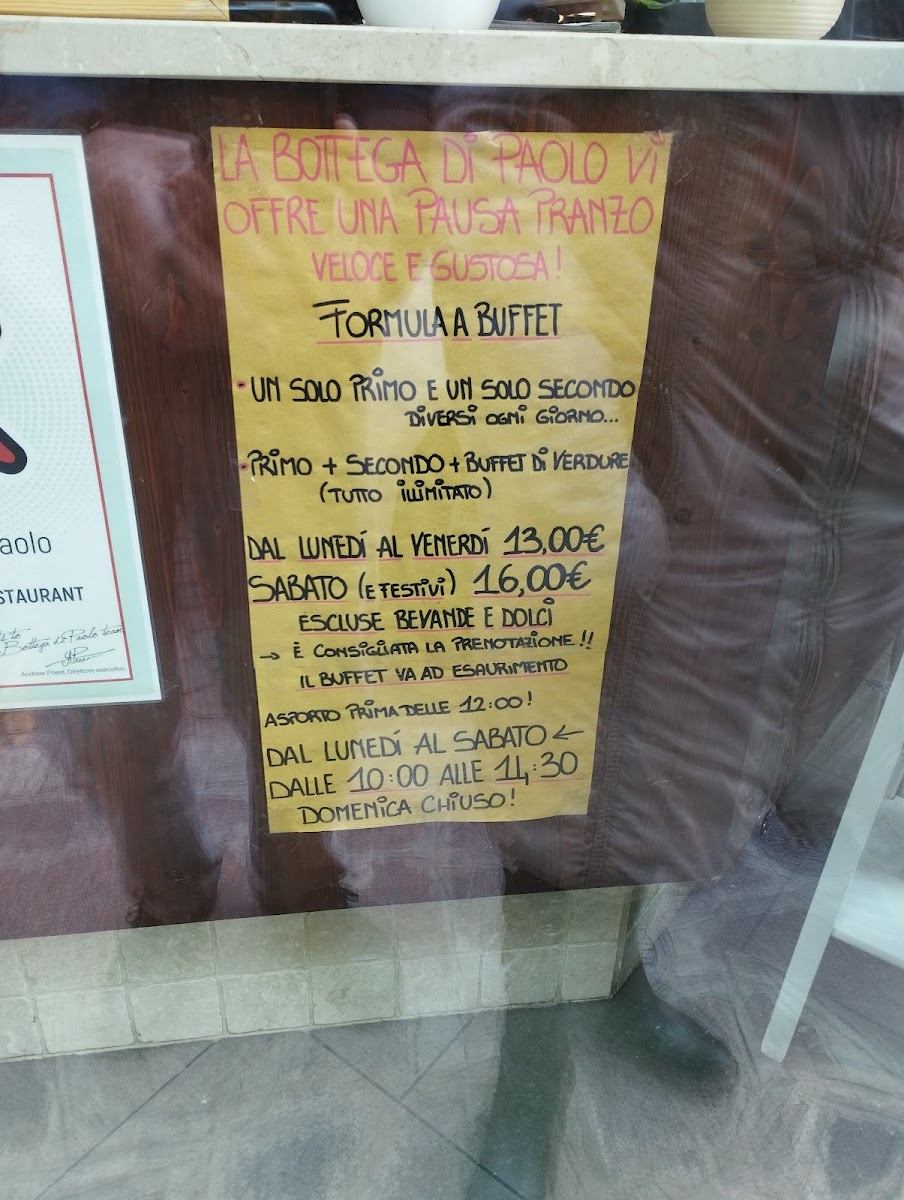 LA BOTTEGA Di PAOLO Vi
OFFRE UNA PAUSA PRANZO
VELOCE E GUSTOSA!
FORMULA A BUFFET
• UN SOLO PRIMO E UN SOLO SECONDO
DIVERSI OGNI GIORNO...
• PRIMO + SECONDO + BUFFET Di VERDURE
(TUTTO ILLIMITATO)
DAL LUNEDÍ AL VENERDÍ 13,00€
SABATO (E FESTIVI) 16,00€
ESCLUSE BEVANDE E DOLCI
→ È CONSIGLIATA LA PRENOTAZIONE!!
IL BUFFET VA AD ESAURIMENTO
ASPORTO PRIMA DELLE 12:00!
DAL LUNEDÍ AL SABATO ←
DALLE 10:00 ALLE 14:30
DOMENICA CHIUSO!
aolo
STAURANT
Bottega di Paolo team
Andrew Priest, Direttore esecutivo